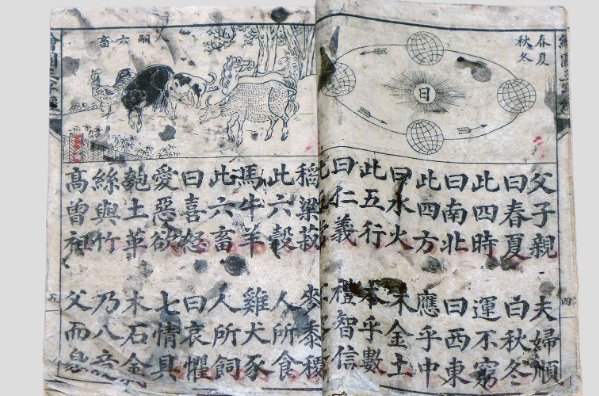 繪圖三字經
春夏
秋冬
日
父子親 夫婦順
曰春夏 曰秋冬
此四時 運不窮
曰南北 曰西東
此四方 應乎中
曰水火 木金土
此五行 本乎數
曰仁義 禮智信
四
六畜
稻粱菽 麥黍稷
此六穀 人所食
馬牛羊 雞犬豕
此六畜 人所飼
曰喜怒 曰哀懼
愛惡欲 七情具
匏土革 木石金
絲與竹 乃八音
高曾祖 父而身
五